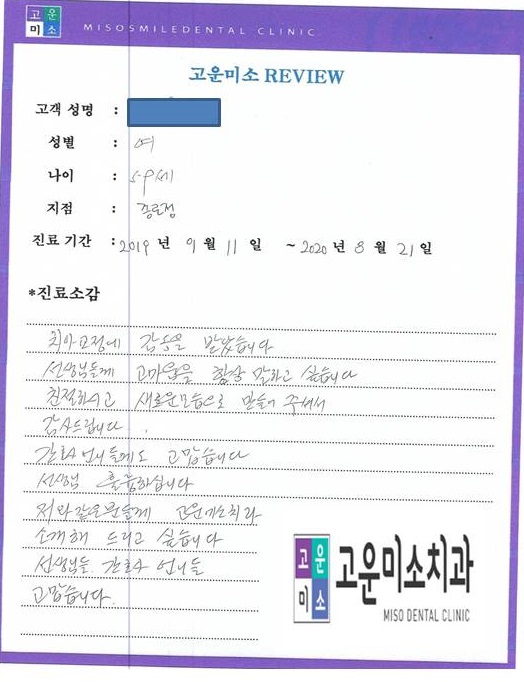 고운
미소
MISOSMILEDENTAL CLINIC
고운미소 REVIEW
고객 성명 :
성별 : 여
나이 : 59세
지점 : 종로점
진료 기간 : 2019 년 9 월 11 일 ~ 2020 년 8 월 21 일
*진료소감
치아교정에 감동을 받았습니다
선생님들께 고마움을 항상 말하고 싶습니다
친절하시고 새로운모습으로 만들어 주셔서
감사드립니다.
간호사 언니들께도 고맙습니다
선생님 훌륭하십니다
저와같은분들께 고운미소치과
소개해 드리고 싶습니다
선생님들 간호사 언니들
고맙습니다.
고운
미소
고운미소치과
MISO DENTAL CLINIC